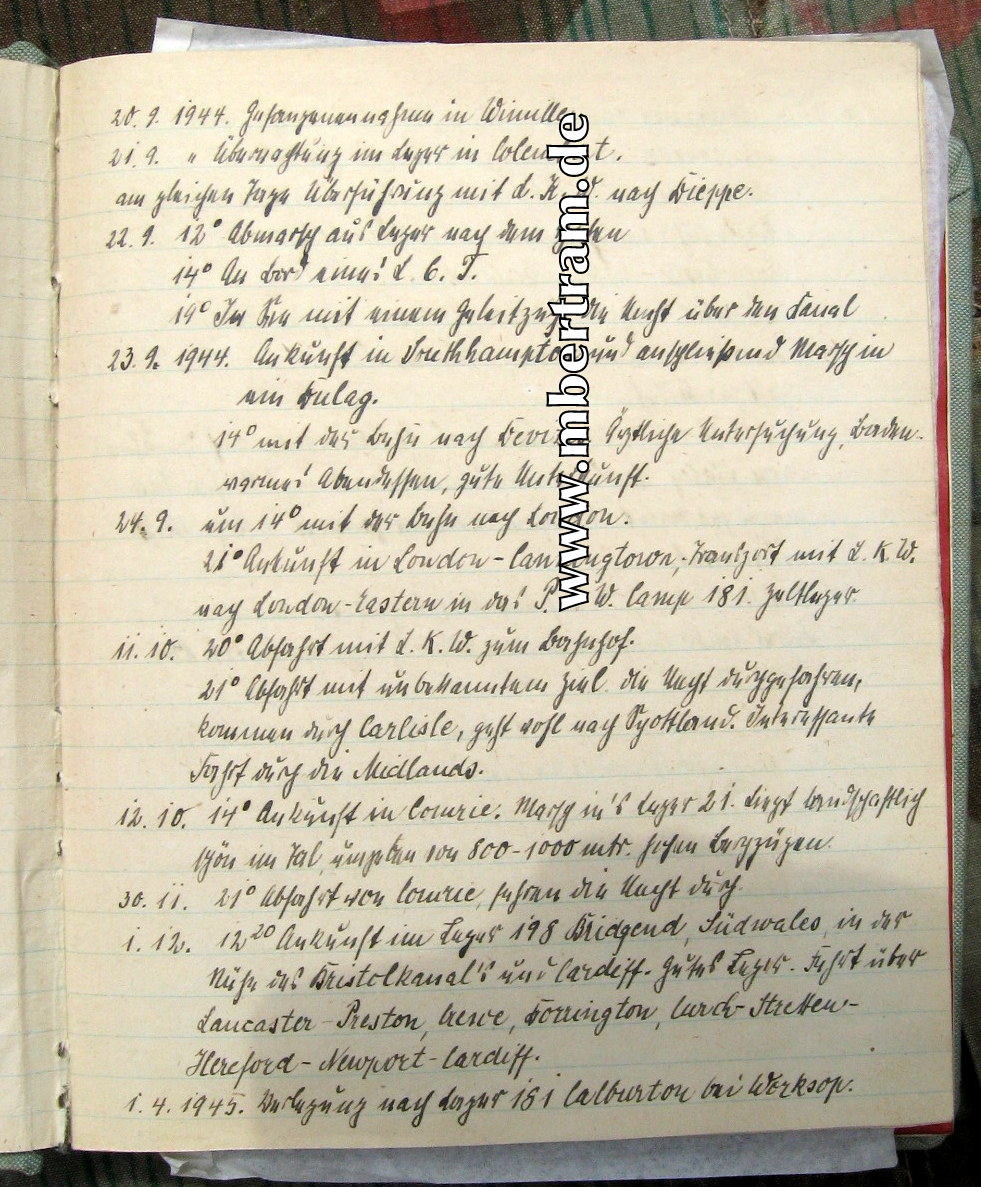 20. 9. 1944. Gefangenennahme in Wimille
21. 9. " Übernachtung im Lager in
am gleichen Tage Überführung mit L. K. W. nach Dieppe.
22. 9. 12° Abmarsch aus Lager nach dem Hafen
14° An Bord eines L. C. T.
19° In See mit einem Geleitzug die Nacht über den Kanal
23. 9. 1944. Ankunft in Southhampton und anschließend Marsch in
ein Dulag.
14° mit der Bahn nach Devizes Ärztliche Untersuchung, Baden.
warmes Abendessen, gute Unterkunft.
24. 9. um 14° mit der Bahn nach London.
21° Ankunft in London - Transport mit L. K. W.
nach London - Eastern in das P. W. Camp 181. Zeltlager
11. 10. 20° Abfahrt mit L. K. W. zum Bahnhof.
21° Abfahrt mit unbekanntem Ziel. die Nacht durchgefahren,
kommen durch Carlisle, geht wohl nach Schottland. Interessante
Fahrt durch die Midlands.
12. 10. 14° Ankunft in Comrie. Marsch in's Lager 21. Liegt landschaftlich
schön im Tal, umgeben von 800 - 1000 mtr. hohen Bergzügen.
30. 11. 21° Abfahrt von Comrie, fuhren die Nacht durch.
1. 12. 12²⁰ Ankunft im Lager 198 Bridgend, Südwales, in der
Nähe des Bristolkanal's und Cardiff. Gutes Lager. Fahrt über
Lancaster - Preston, Crewe, Dorrington, Church-Stretten -
Hereford - Newport - Cardiff.
1. 4. 1945. Verlegung nach Lager 181 Calburton bei Worksop.
www.mbertram.de